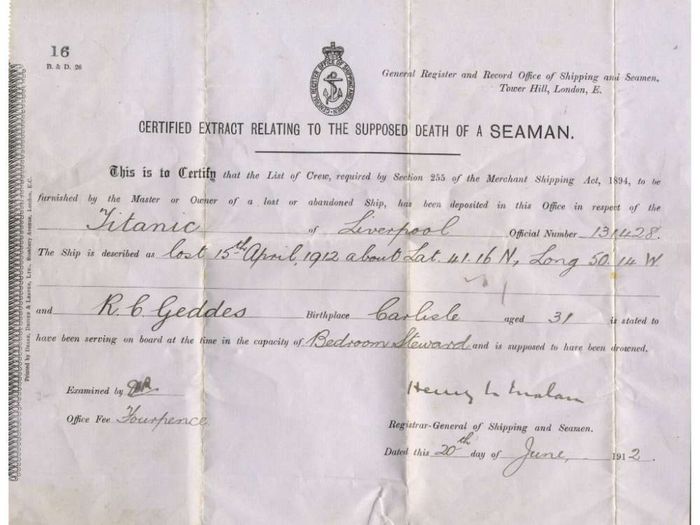 16
B. & D. 26
General Register and Record Office of Shipping and Seamen,
Tower Hill, London, E.
CERTIFIED EXTRACT RELATING TO THE SUPPOSED DEATH OF A SEAMAN.
This is to Certify that the List of Crew, required by Section 255 of the Merchant Shipping Act, 1894, to be
furnished by the Master or Owner of a lost or abandoned Ship, has been deposited in this Office in respect of the
Titanic of Liverpool Official Number 131428.
The Ship is described as lost 15th April, 1912 about Lat. 41.16 N, Long 50.14 W
and R. C. Geddes Birthplace Carlisle aged 31 is stated to
have been serving on board at the time in the capacity of Bedroom Steward and is supposed to have been drowned.
Examined by
Henry N Malan
Office Fee Fourpence
Registrar-General of Shipping and Seamen.
Dated this 20th day of June, 1912.